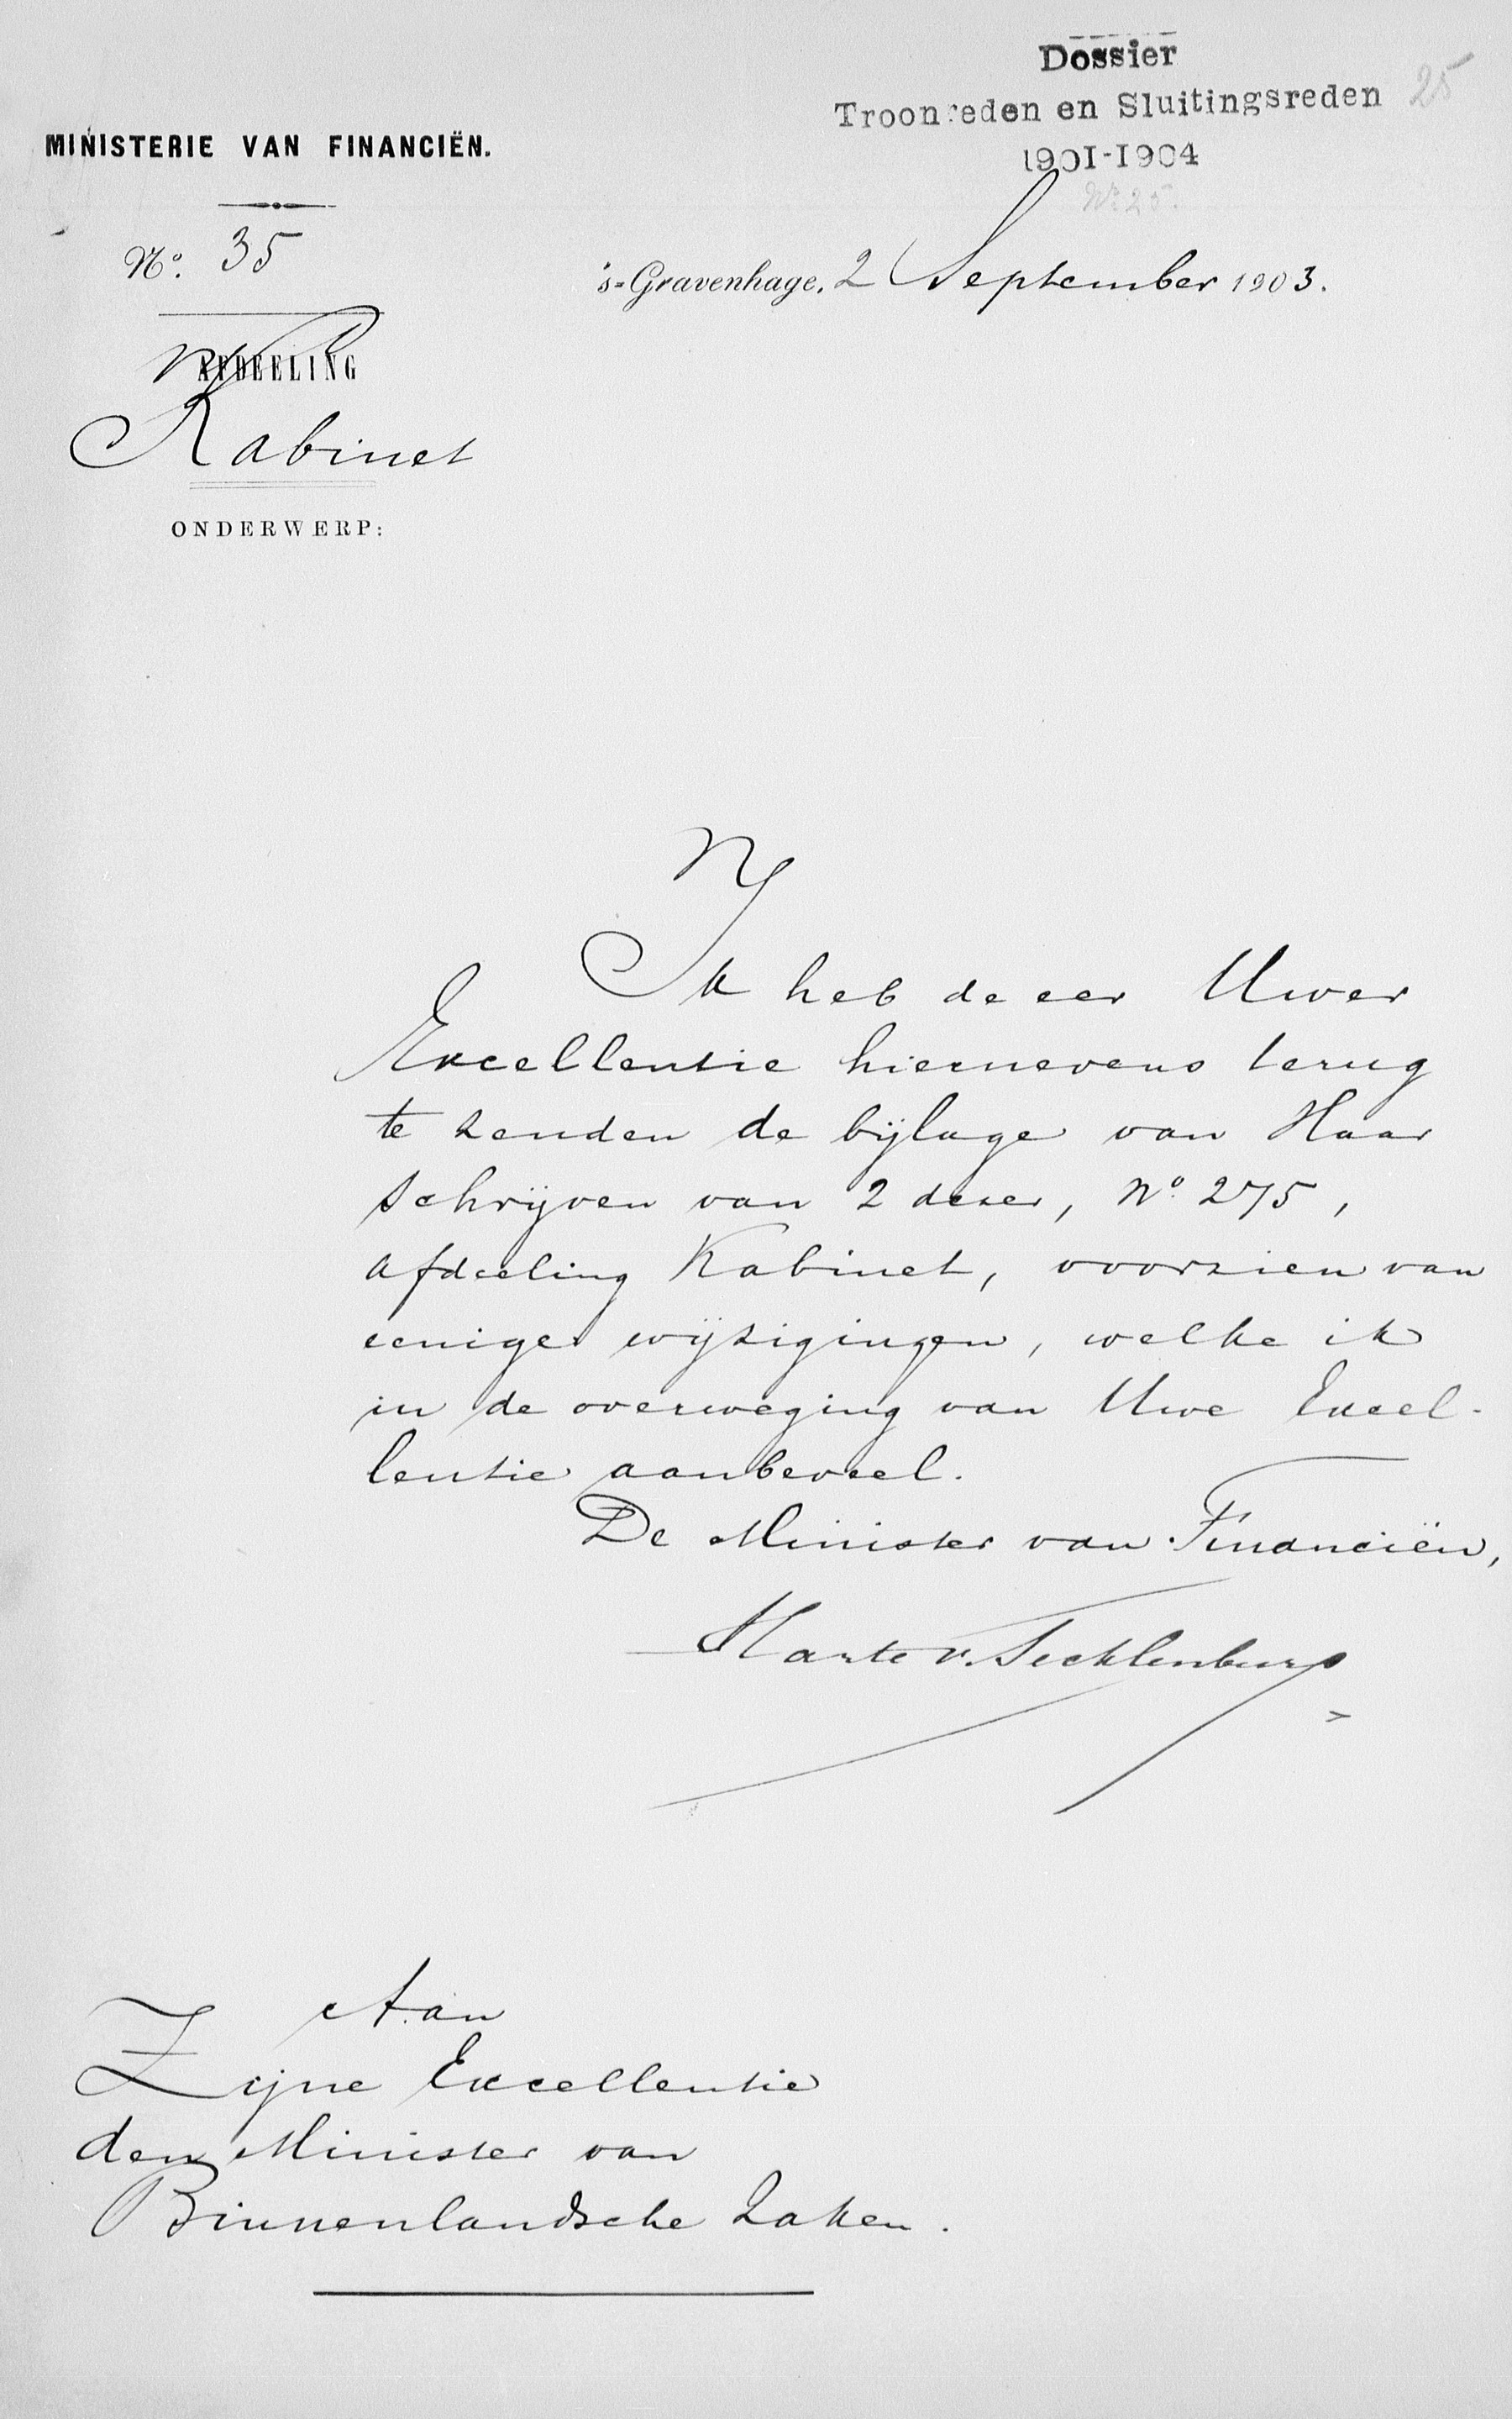 Dossier
Troonreden en Sluitingsreden 25
1901-1904
Nº 25.
MINISTERIE VAN FINANCIËN.
Nº. 35
's-Gravenhage, 2 September 1903.
AFDEELING
Kabinet
ONDERWERP:
Ik heb de eer Uwer
Excellentie hiernevens terug
te zenden de bijlage van Haar
schrijven van 2 dezer, Nº 275,
afdeeling Kabinet, voorzien van
eenige wijzigingen, welke ik
in de overweging van Uwe Excel-
lentie aanbeveel.
De Minister van Financiën,
Harte v. Tecklenburg
Aan
Zijne Excellentie
den Minister van
Binnenlandsche Zaken.